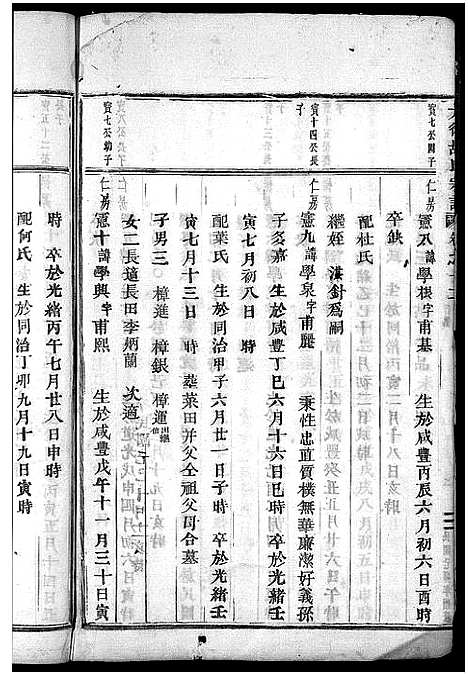 寅七公四子
仁房
憲八諱學根字甫基 生於咸豐丙辰六月初六日酉時
卒缺
配杜氏
繼姪漢針爲嗣
寅十四公長子
仁房
憲九諱學泉字甫麗 秉性忠直質樸無華廉潔好義孫
子炎嘉 生於咸豐丁巳六月十六日巳時 卒於光緒壬
寅七月初八日 時
配葉氏 生於同治甲子六月廿一日子時 卒於光緒壬
寅七月十三日 時 塟菜田并父仝祖父母合墓
子男三 樟進 樟銀 樟運出繼
女二長適長田李炳蘭 次適
寅七公幼子
仁房
憲十諱學興字甫熙 生於咸豐戊午十一月三十日寅
時 卒於光緒丙午七月廿八日申時
配何氏 生於同治丁卯九月十九日寅時